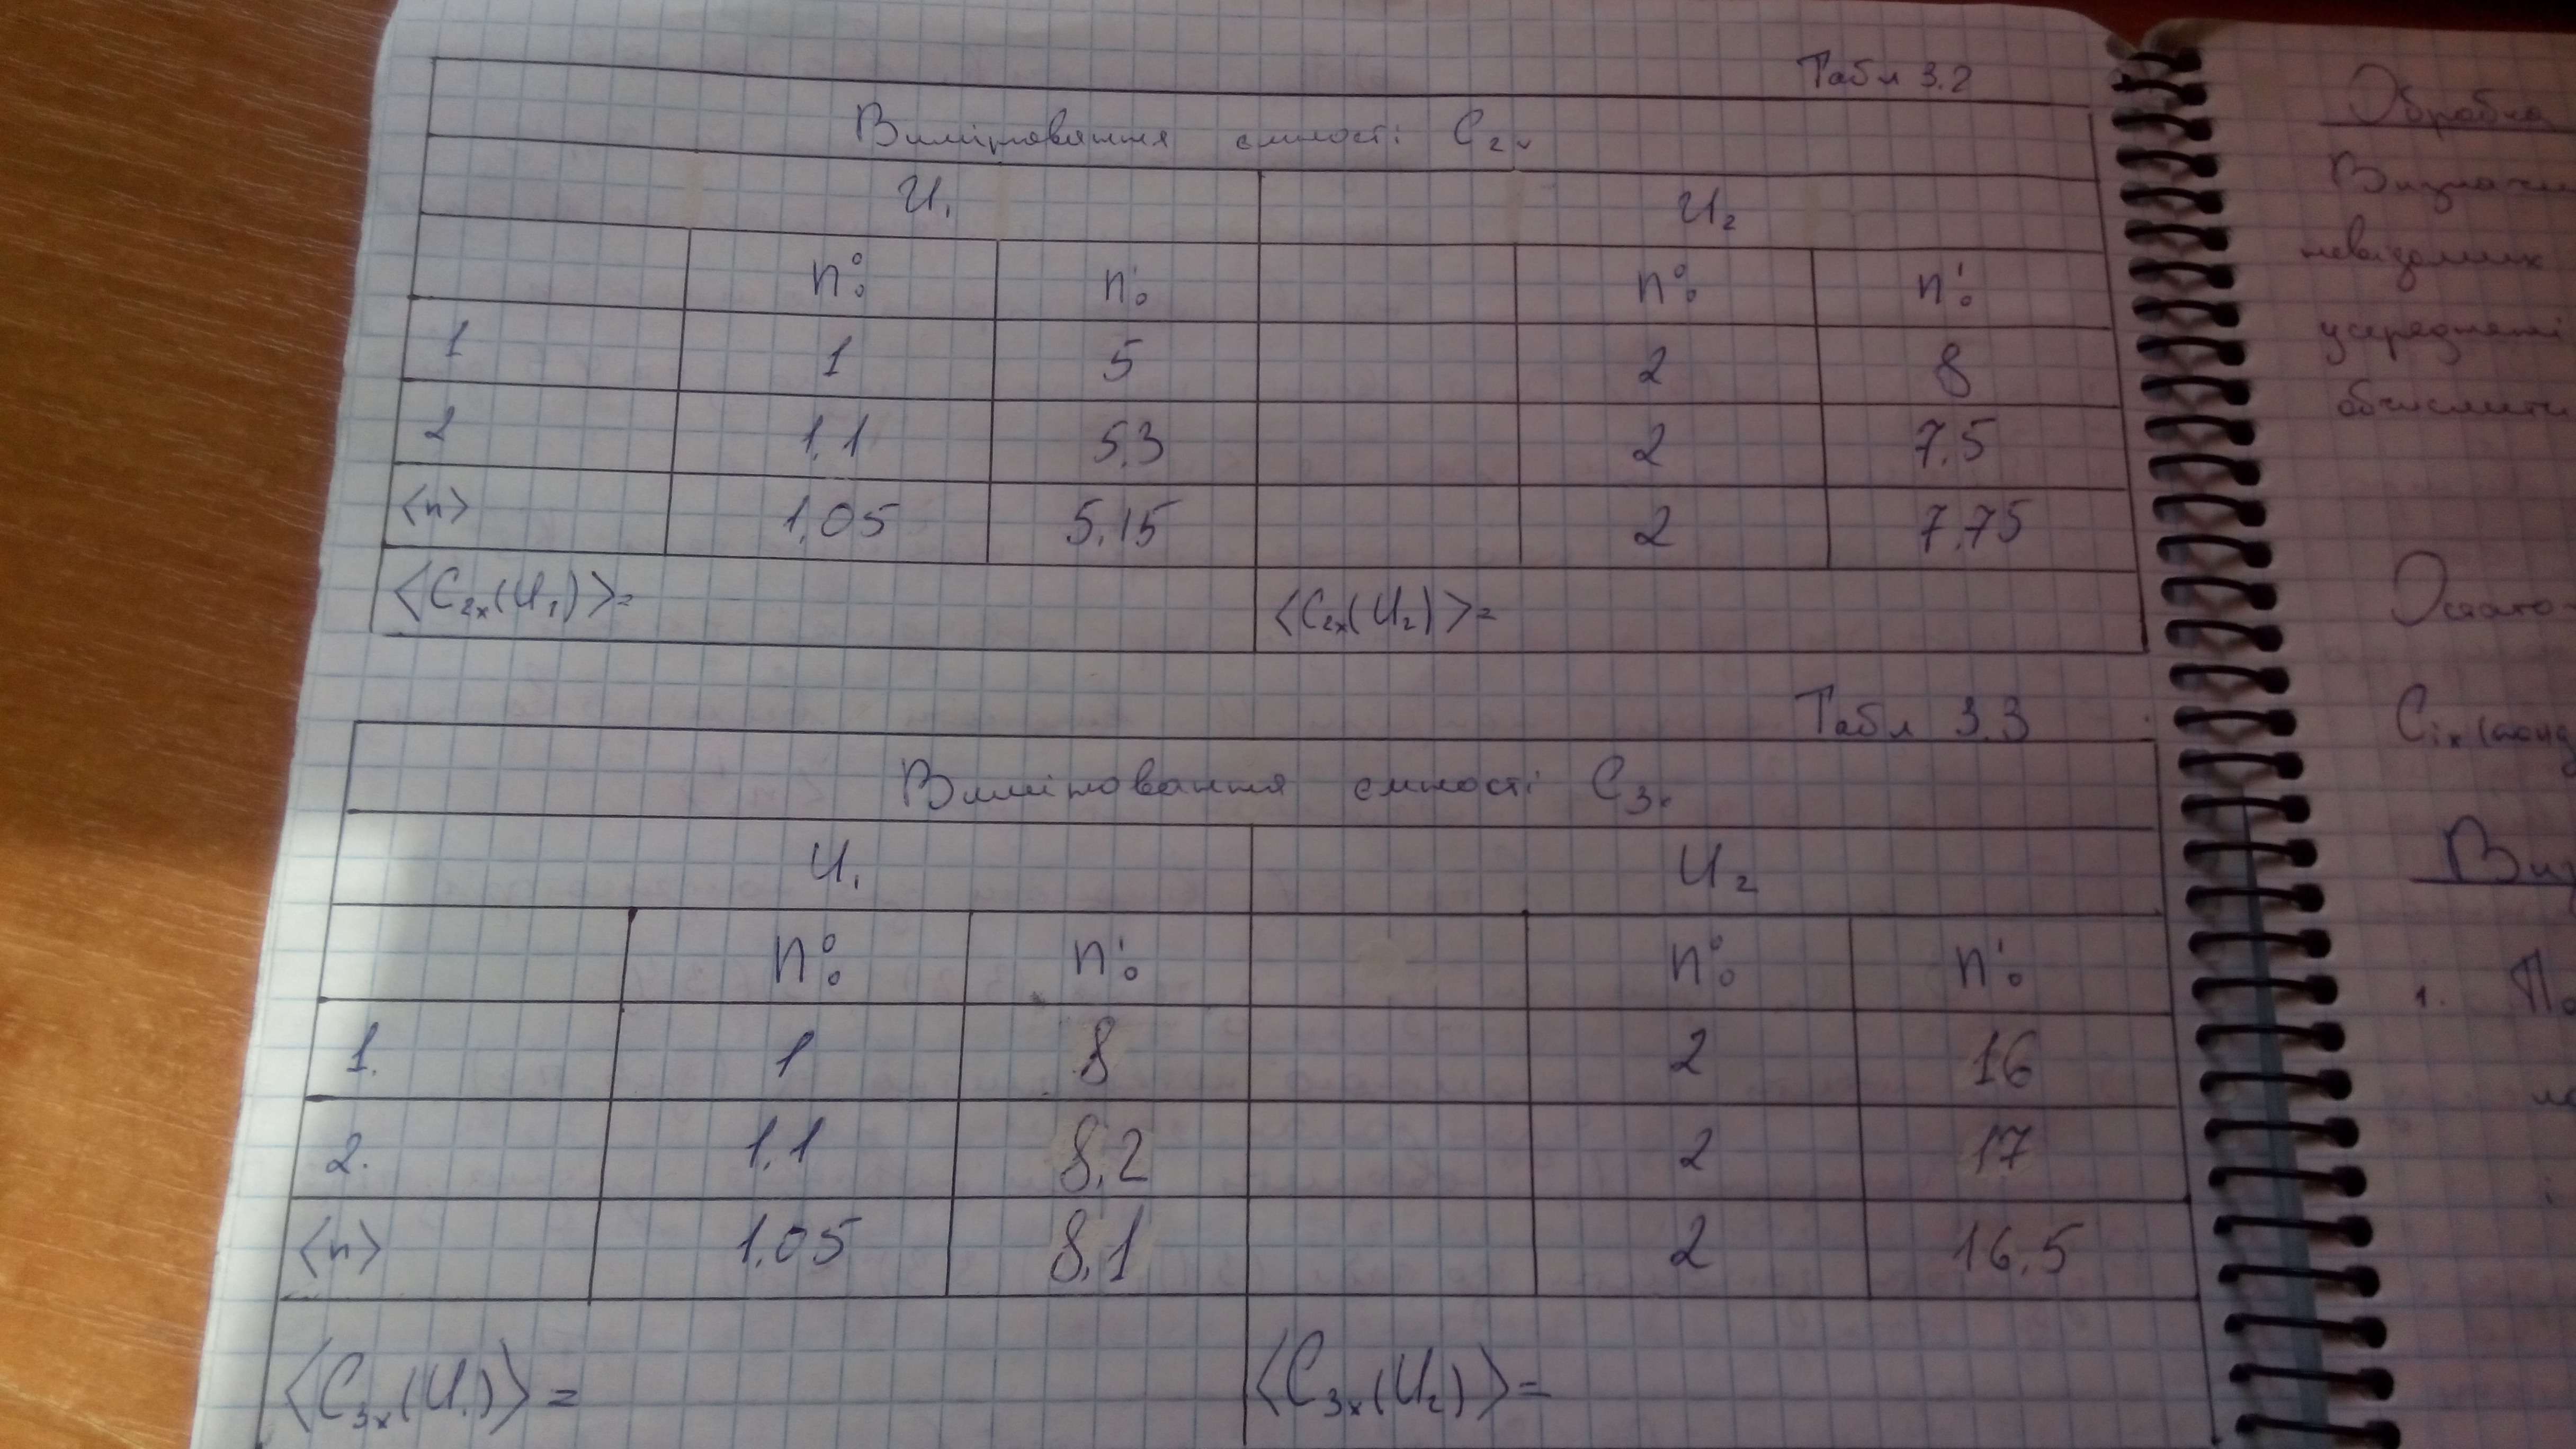 Табл 3.2
Вимірювання ємності C₂ₓ
U₁ U₂
n₀⁰ n₀¹ n₀⁰ n₀¹
1 1 5 2 8
2 1.1 5.3 2 7.5
<n> 1.05 5.15 2 7.75
<C₂ₓ(U₁)>= <C₂ₓ(U₂)>=
Табл 3.3
Вимірювання ємності C₃ₓ
U₁ U₂
n₀⁰ n₀¹ n₀⁰ n₀¹
1. 1 8 2 16
2. 1.1 8.2 2 17
<n> 1.05 8.1 2 16.5
<C₃ₓ(U₁)>= <C₃ₓ(U₂)>=
Обробка
невідомих
усереднені
обчислити
1.